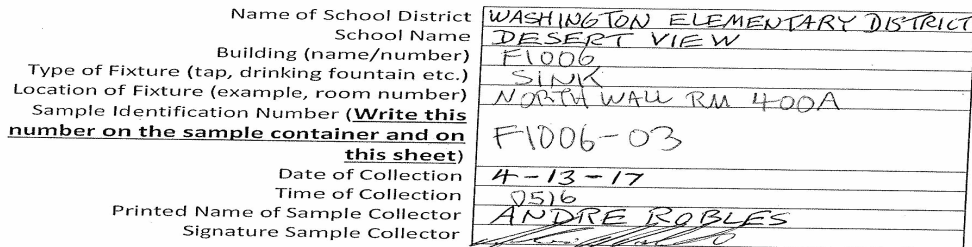 Name of School District WASHINGTON ELEMENTARY DISTRICT
School Name DESERT VIEW
Building (name/number) F1006
Type of Fixture (tap, drinking fountain etc.) SINK
Location of Fixture (example, room number) NORTH WALL RM 400A
Sample Identification Number (Write this
number on the sample container and on
this sheet) F1006-03
Date of Collection 4-13-17
Time of Collection 0516
Printed Name of Sample Collector ANDRE ROBLES
Signature Sample Collector